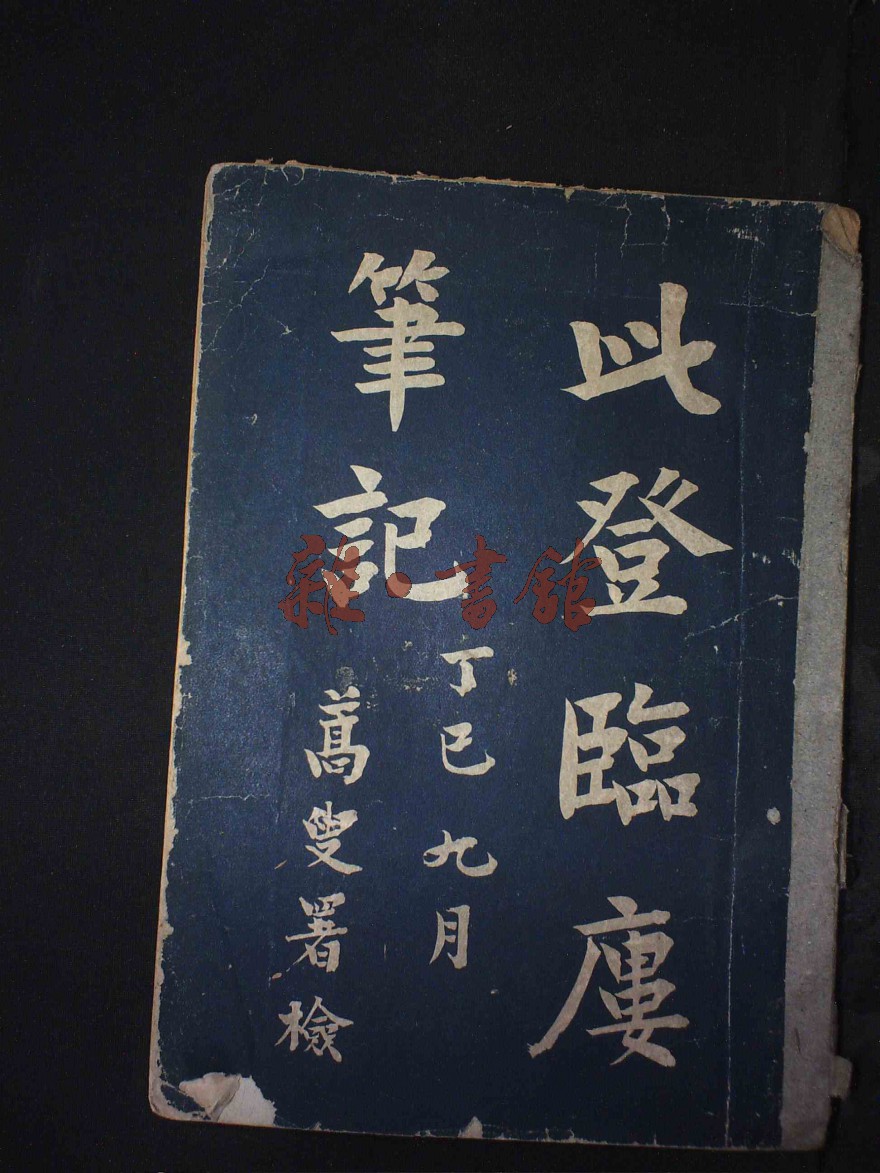 此登臨廔
筆記
丁巳九月
蒿叟署檢
雜·書館